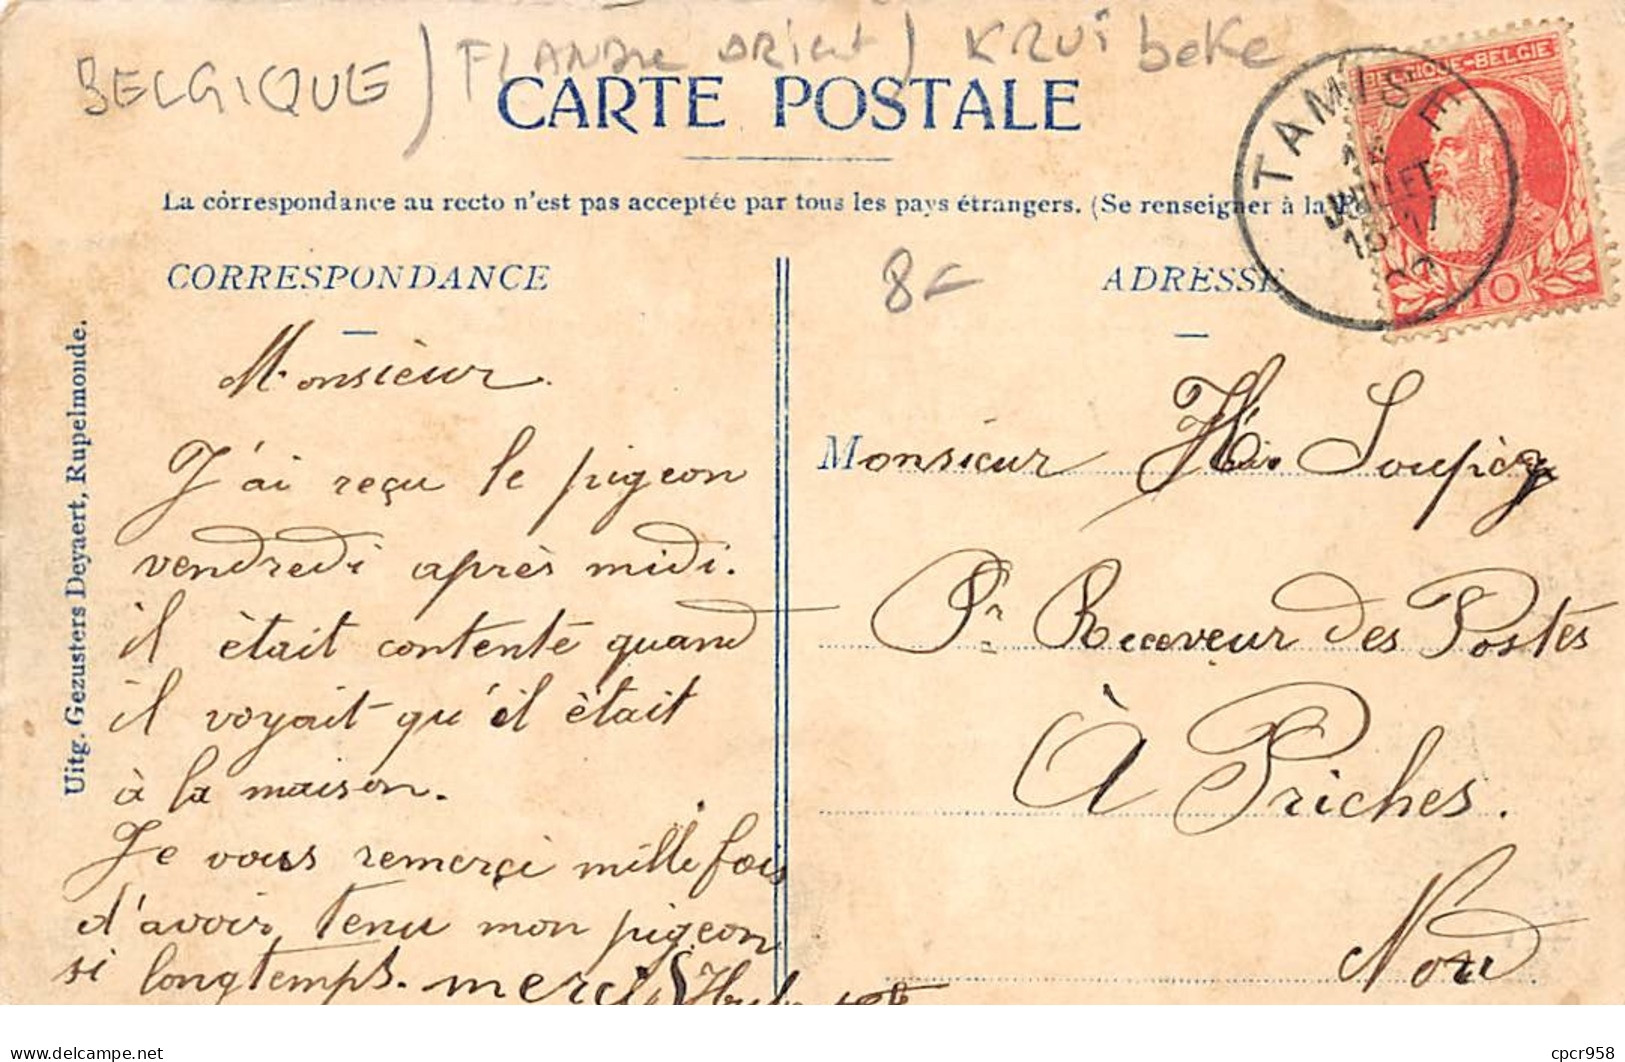 BELGIQUE) FLANDRE ORIENT) KRUIbeke
CARTE POSTALE
TAMISE
BELGIQUE-BELGIE
JUILLET
16-17
10
La côrrespondance au recto n'est pas acceptée par tous les pays étrangers. (Se renseigner à la
8-
CORRESPONDANCE
ADRESSE
Uitg. Gezusters Deyaert, Rupelmonde.
Monsieur.
J'ai reçu le pigeon
vendredi après midi.
il ètait contente quand
il voyait qu'il ètait
à la maison.
Je vous remerçi mille fois
d'avoir tenu mon pigeon
si longtemps. merci
Monsieur Soupiez
Pr Receveur des Postes
À Priches.
Nord
cpcr958